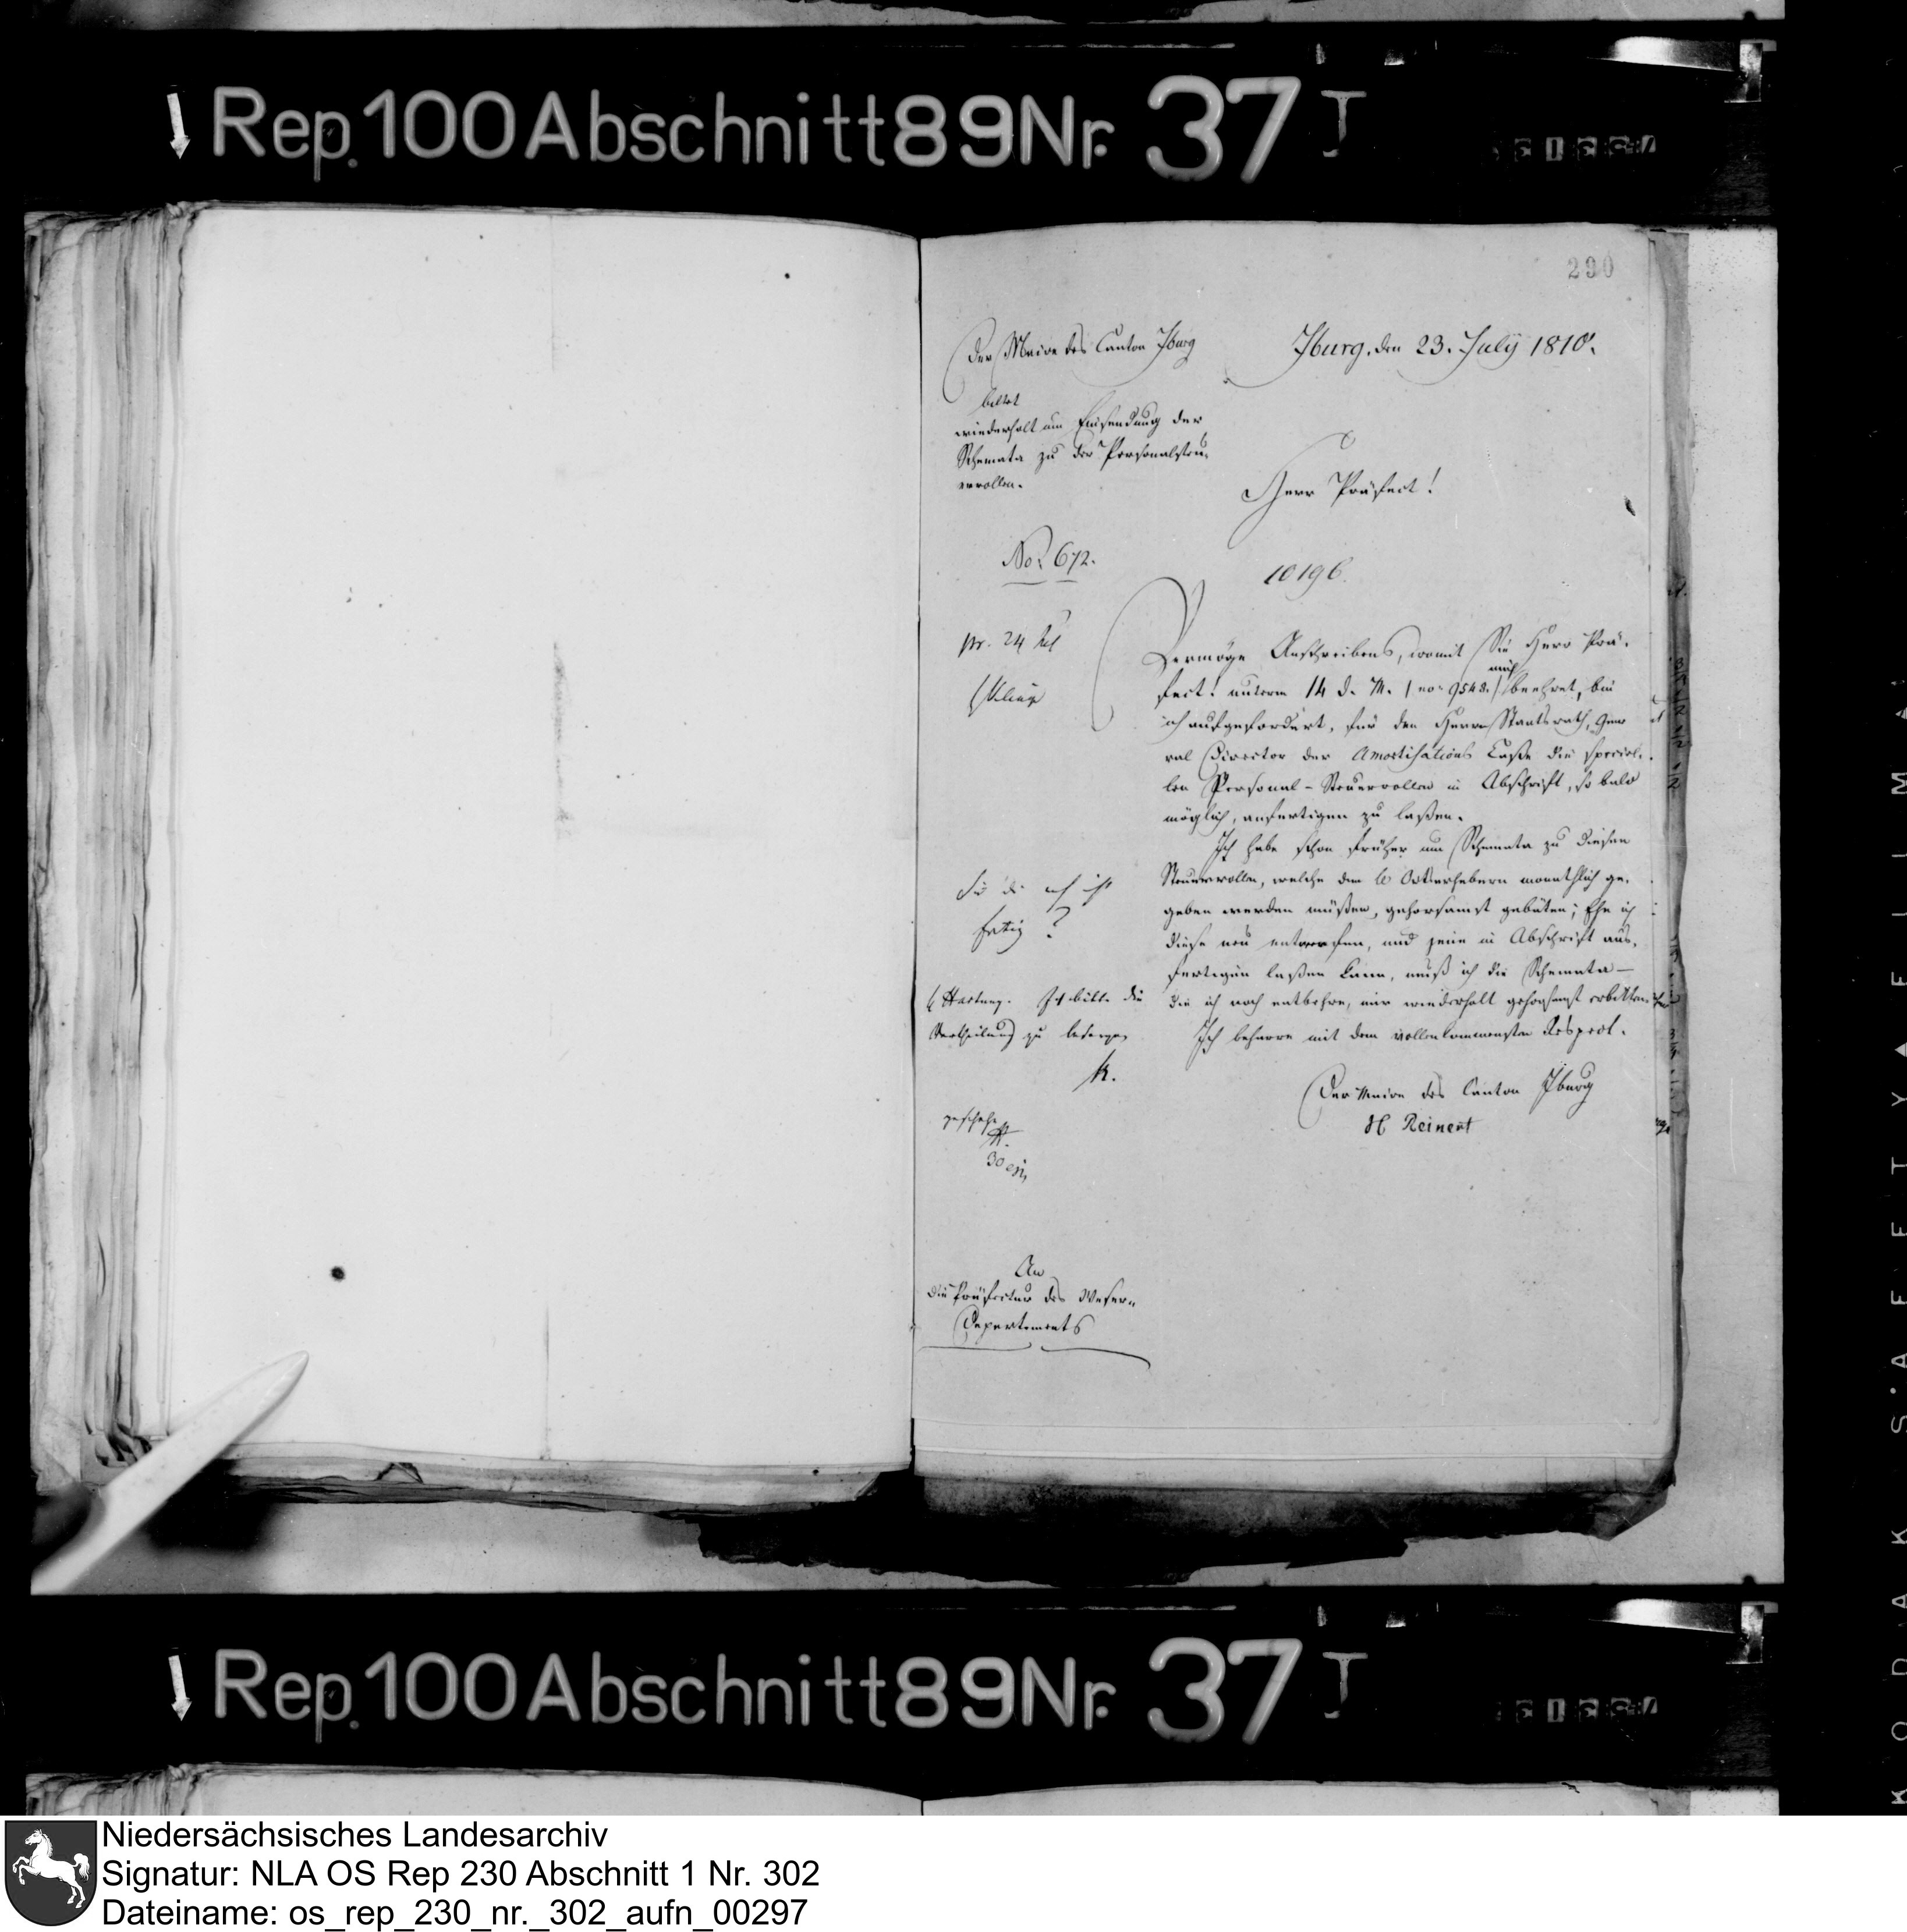 Rep. 100 Abschnitt 89 Nr. 37 I
290
Der Maire des Canton Iburg
Iburg, den 23. July 1810.
bittet
wiederholt um Einsendung der
Schemata zu der Personalsteu-
errollen.
Herr Präfect!
No: 672.
10196.
pr. 24 Jul
Vermöge Anschreibens, womit Sie Herr Prä-
fect! unterm 14 d. M. (no: 9543.) mich beehret, bin
ich aufgefordert, für den Herrn Staatsrath, Gene
ral Director der Amortisations Casse die speciel-
len Personal-Steuerrollen in Abschrift, so bald
möglich, anfertigen zu laßen.
Ich habe schon früher um Schemata zu diesen
Steuerrollen, welche den Ortserhebern monathlich ge-
geben werden müßen, gehorsamst gebäten; Ehe ich
diese neu entwerfen, und jene in Abschrift aus-
fertigen laßen kann, muß ich die Schemata —
die ich noch entbehre, mir wiederholt gehorsamst erbitten.
Ich beharre mit dem vollenkommensten Respect.
Der Maire des Canton Iburg
Reinert
fertig?
Hartung. Ich bitte die
Vertheilung zu besorgen
K.
geschehen
H.
30
An
die Präfectur des Weser-
Departements
Rep. 100 Abschnitt 89 Nr. 37 I
KODAK SAFETY FILM
Niedersächsisches Landesarchiv
Signatur: NLA OS Rep 230 Abschnitt 1 Nr. 302
Dateiname: os_rep_230_nr._302_aufn_00297